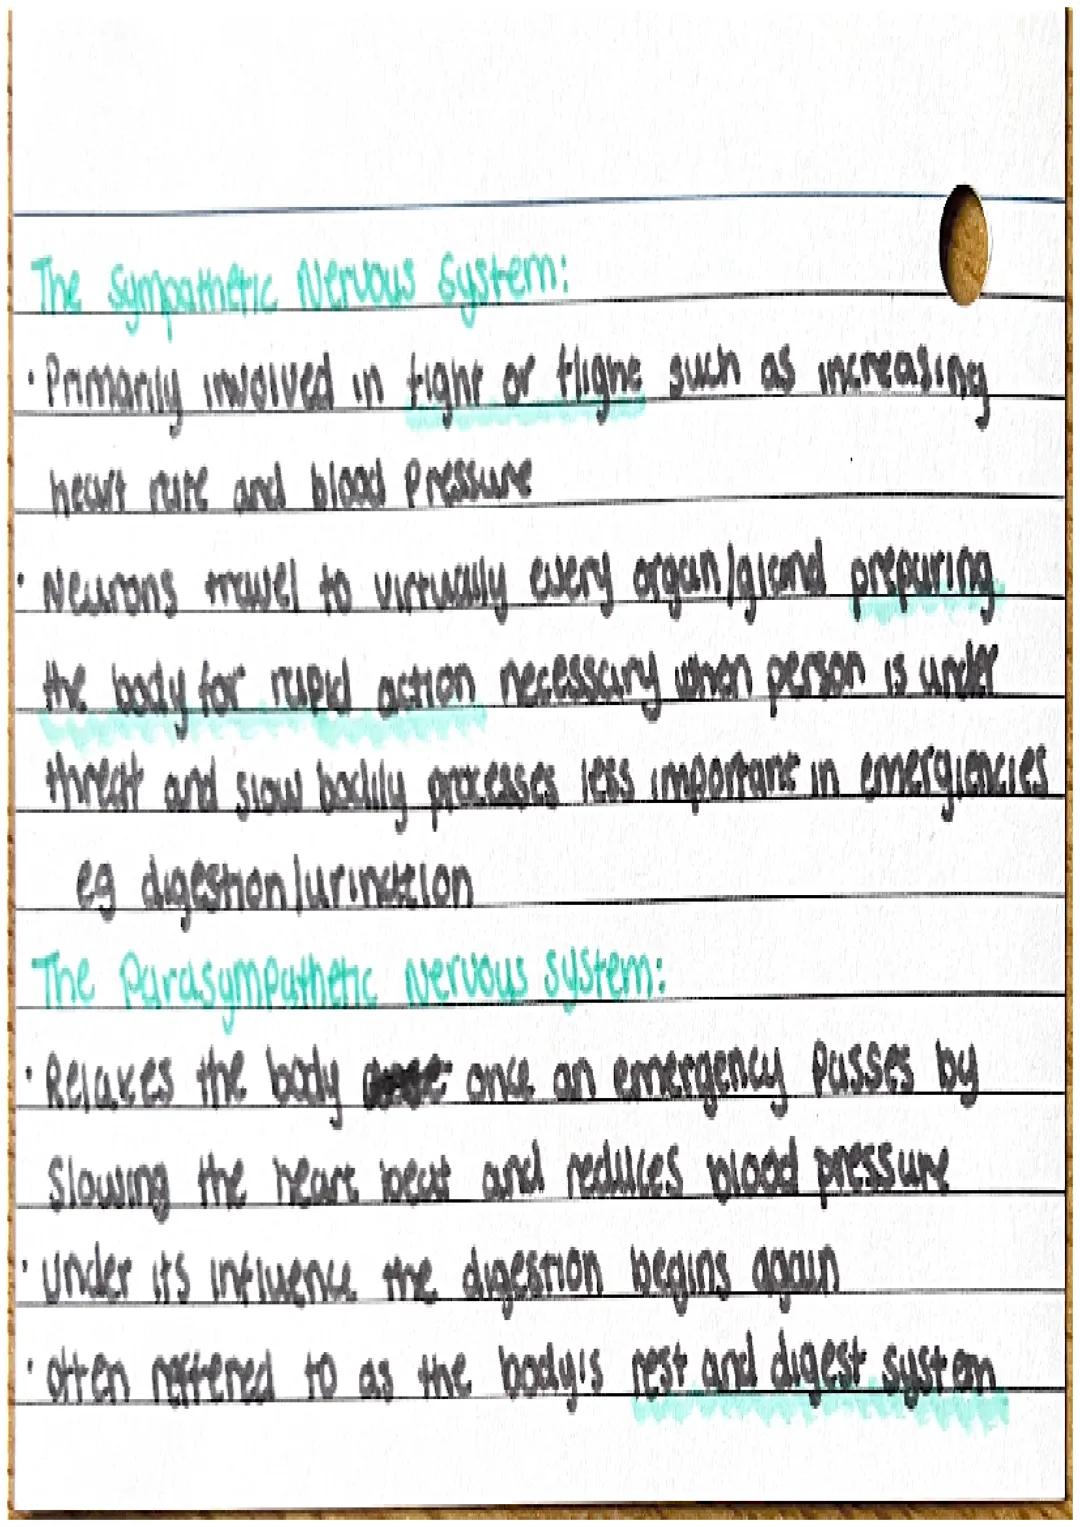 The Sympathetic Nervous System:
· Primarily involved in fight or flight such as increasing
heart rate and blood Pressure
· Neurons travel to virtually every organ/gland preparing
the body for rapid action necessary when person is under
threat and slow bodily processes less important in emergiencies
eg digestion/urination
The Parasympathetic Nervous System:
· Relaxes the body once an emergency Passes by
Slowing the heart beat and reduces blood pressure
· Under its influence the digestion begins again
· Often reffered to as the body's rest and digest system